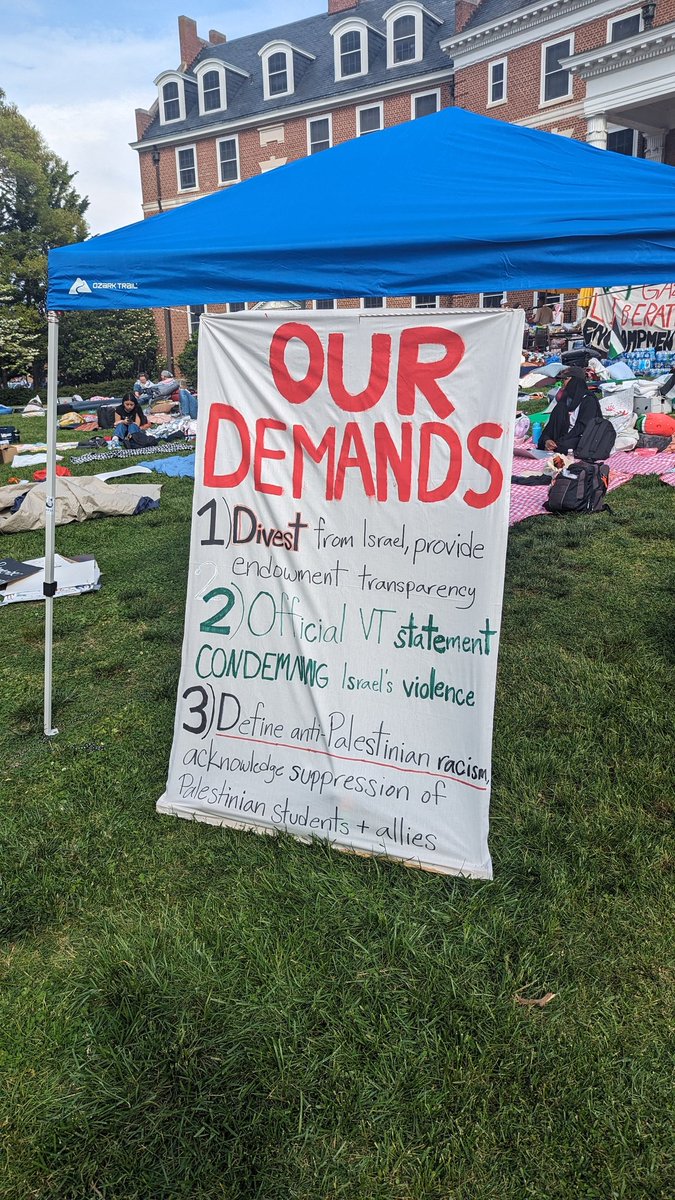 OZARK TRAIL
GAZA
LIBERAT
ENCAMPMEN
OUR
DEMANDS
1) Divest from Israel, provide
endowment transparency
2) Official VT statement
CONDEMNING Israel's violence
3) Define anti-Palestinian racism,
acknowledge suppression of
Palestinian students + allies